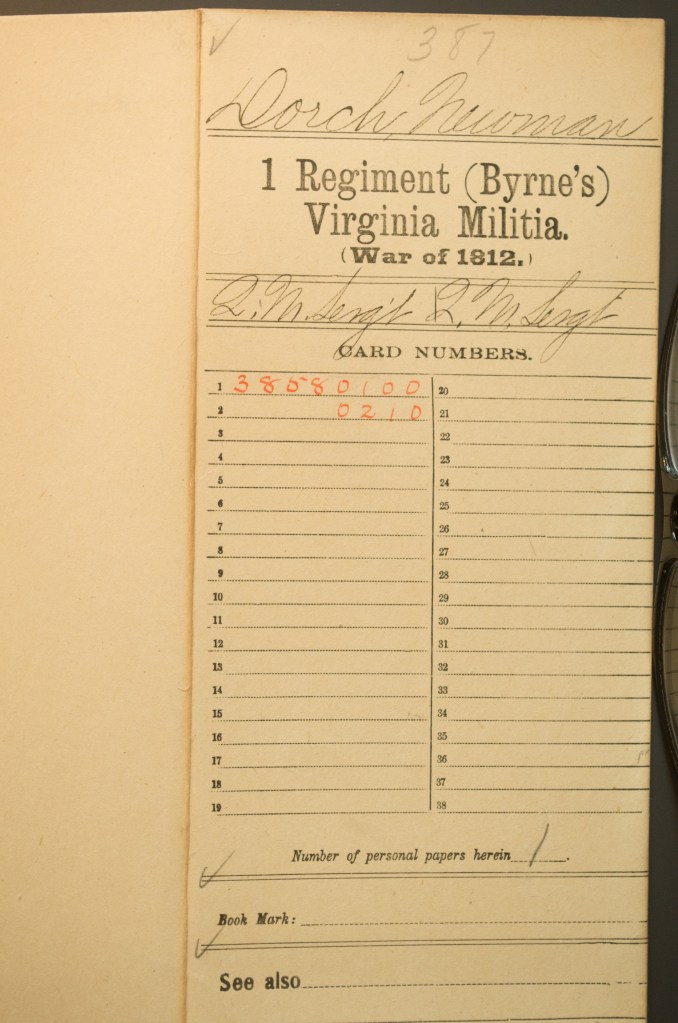 387
Dorch, Newman
1 Regiment (Byrne's)
Virginia Militia.
(War of 1812.)
Q. M. Sergt Q. M. Sergt
CARD NUMBERS.
1 38580100 20
2 0210 21
3 22
4 23
5 24
6 25
7 26
8 27
9 28
10 29
11 30
12 31
13 32
14 33
15 34
16 35
17 36
18 37
19 38
Number of personal papers herein 1.
Book Mark:
See also